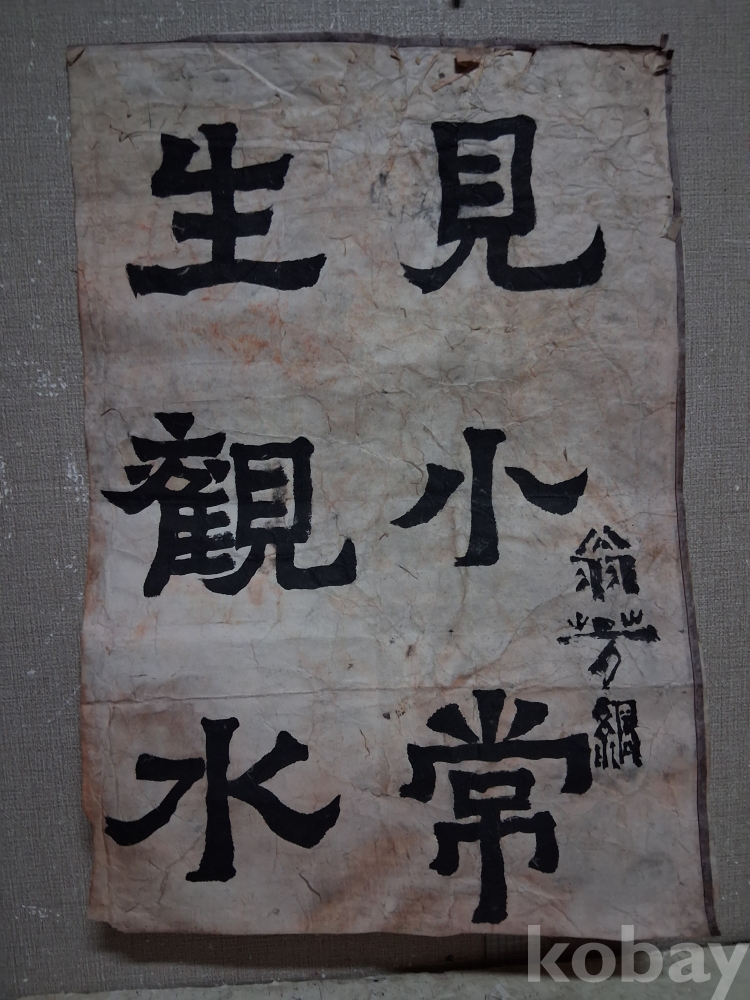 見小常
生觀水
翁方綱
kobay